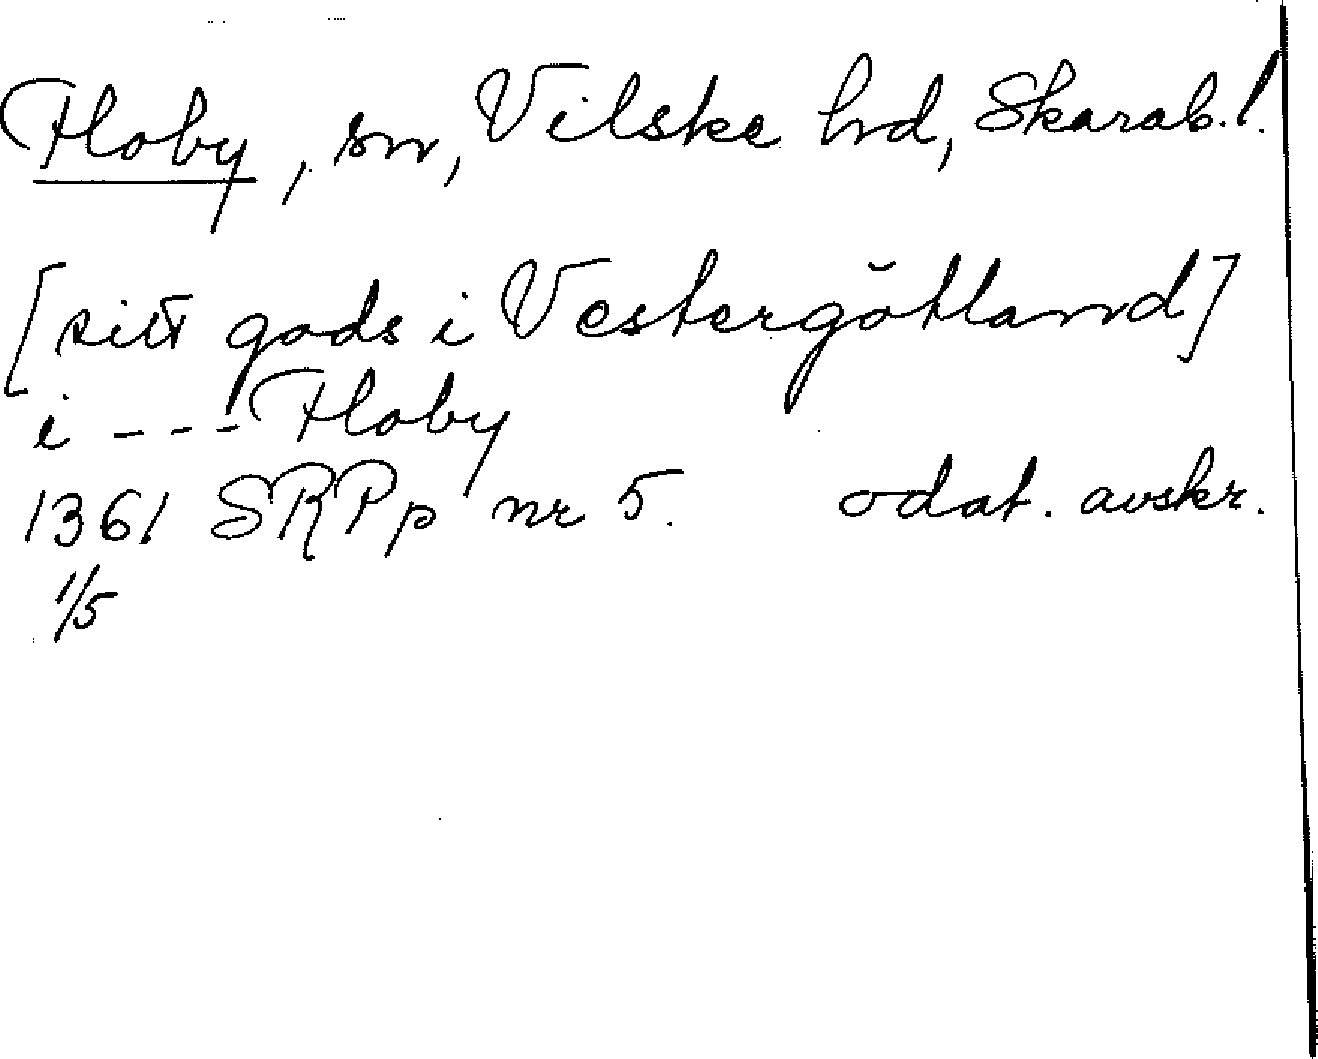 Floby, sn, Vilske hd, Skarab. l.
[sitt gods i Vestergötland]
i --- Floby
1361 SRPp nr 5. odat. avskr.
1/5